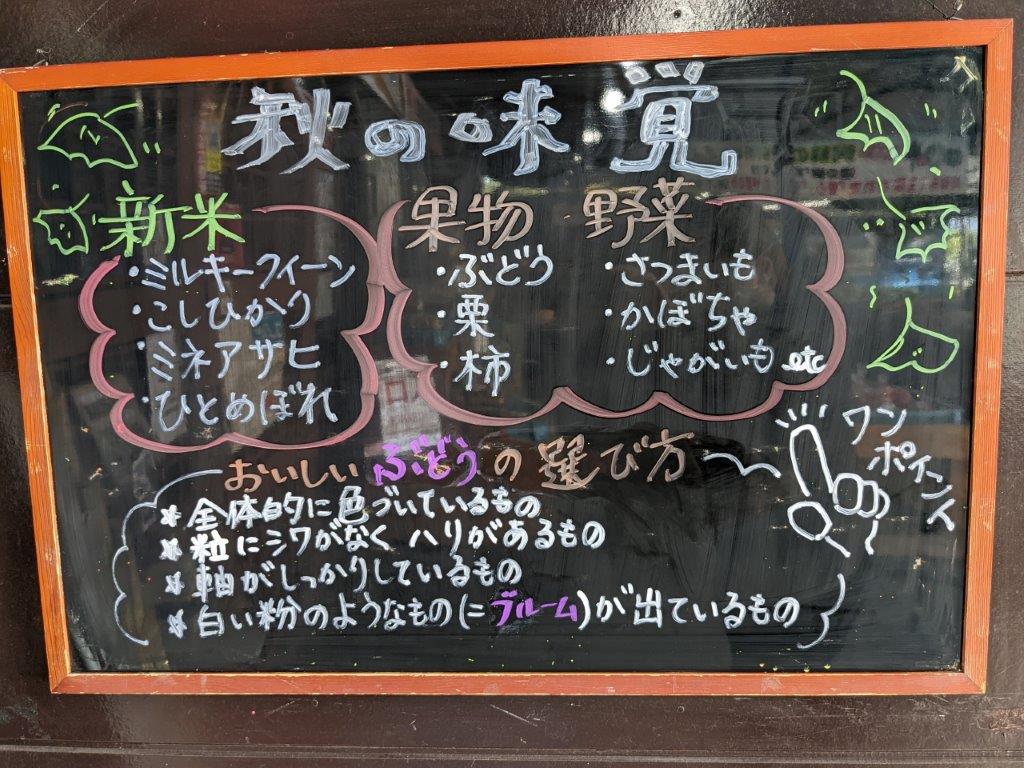 秋の味覚
新米
・ミルキークイーン
・こしひかり
・ミネアサヒ
・ひとめぼれ
果物
・ぶどう
・栗
・柿
野菜
・さつまいも
・かぼちゃ
・じゃがいも etc
おいしいぶどうの選び方
ワン
ポインス
* 全体的に色づいているもの
* 粒にシワがなく ハリがあるもの
* 軸がしっかりしているもの
* 白い粉のようなもの(=ブルーム)が出ているもの